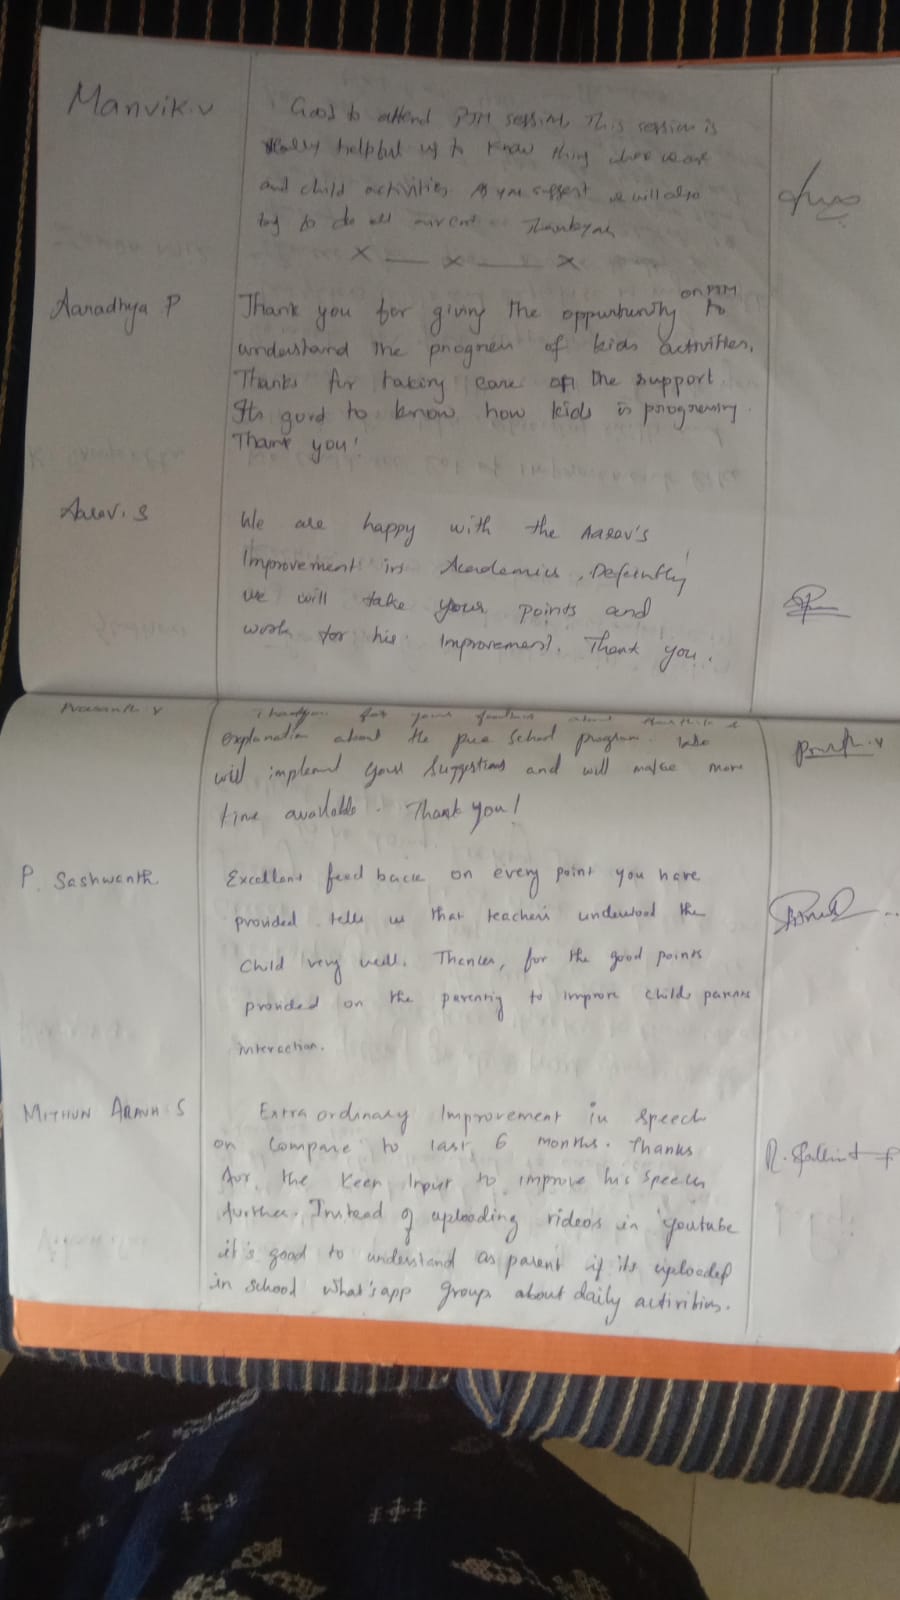 Manvik.v
Good to attend PTM session. This session is
really helpful us to know thing
and child activities. As you suggest we will also
to do all Thankyou
x — x — x
Aaradhya P
Thank you for giving the oppurtunity on PTM to
understand the progress of kids activities.
Thanks for taking care of the support.
Its good to know how kids is progressing.
Thank you!
Aarav. S
We are happy with the Aarav's
Improvement in Academics, Defeintly
we will take your points and
work for his Improvement. Thank you.
Prasanth V
Thankyou for your feedback about
explanation about the pree school program. We
will implement your suggestions and will make more
time available. Thank you!
P. Sashwanth
Excellent feed back on every point you have
provided tells us that teachers understood the
child very well. Thanks, for the good points
provided on the parenting to improve child parents
interaction.
MITHUN S
Extra ordinary Improvement in speech
on compare to last 6 months. Thanks
for the keen Input to improve his speech
further. Instead of uploading videos in youtube
it's good to understand as parent if its uploaded
in school what'sapp group about daily activities.